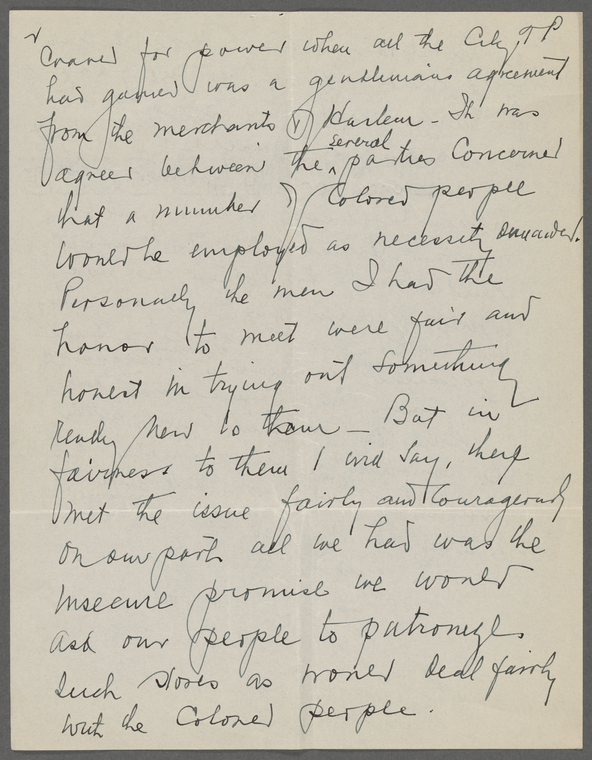 Craved for power when all the City
had gained was a gentleman's agreement
from the merchants of Harlem - It was
agreed between the several parties Concerned
that a number of Colored people
would be employed as necessity demanded.
Personally the men I had the
honor to meet were fair and
honest in trying out something
really new to them - But in
fairness to them I will say, they
met the issue fairly and courageously
On our part all we had was the
insecure promise we would
ask our people to patronize
such stores as would deal fairly
with the Colored people.